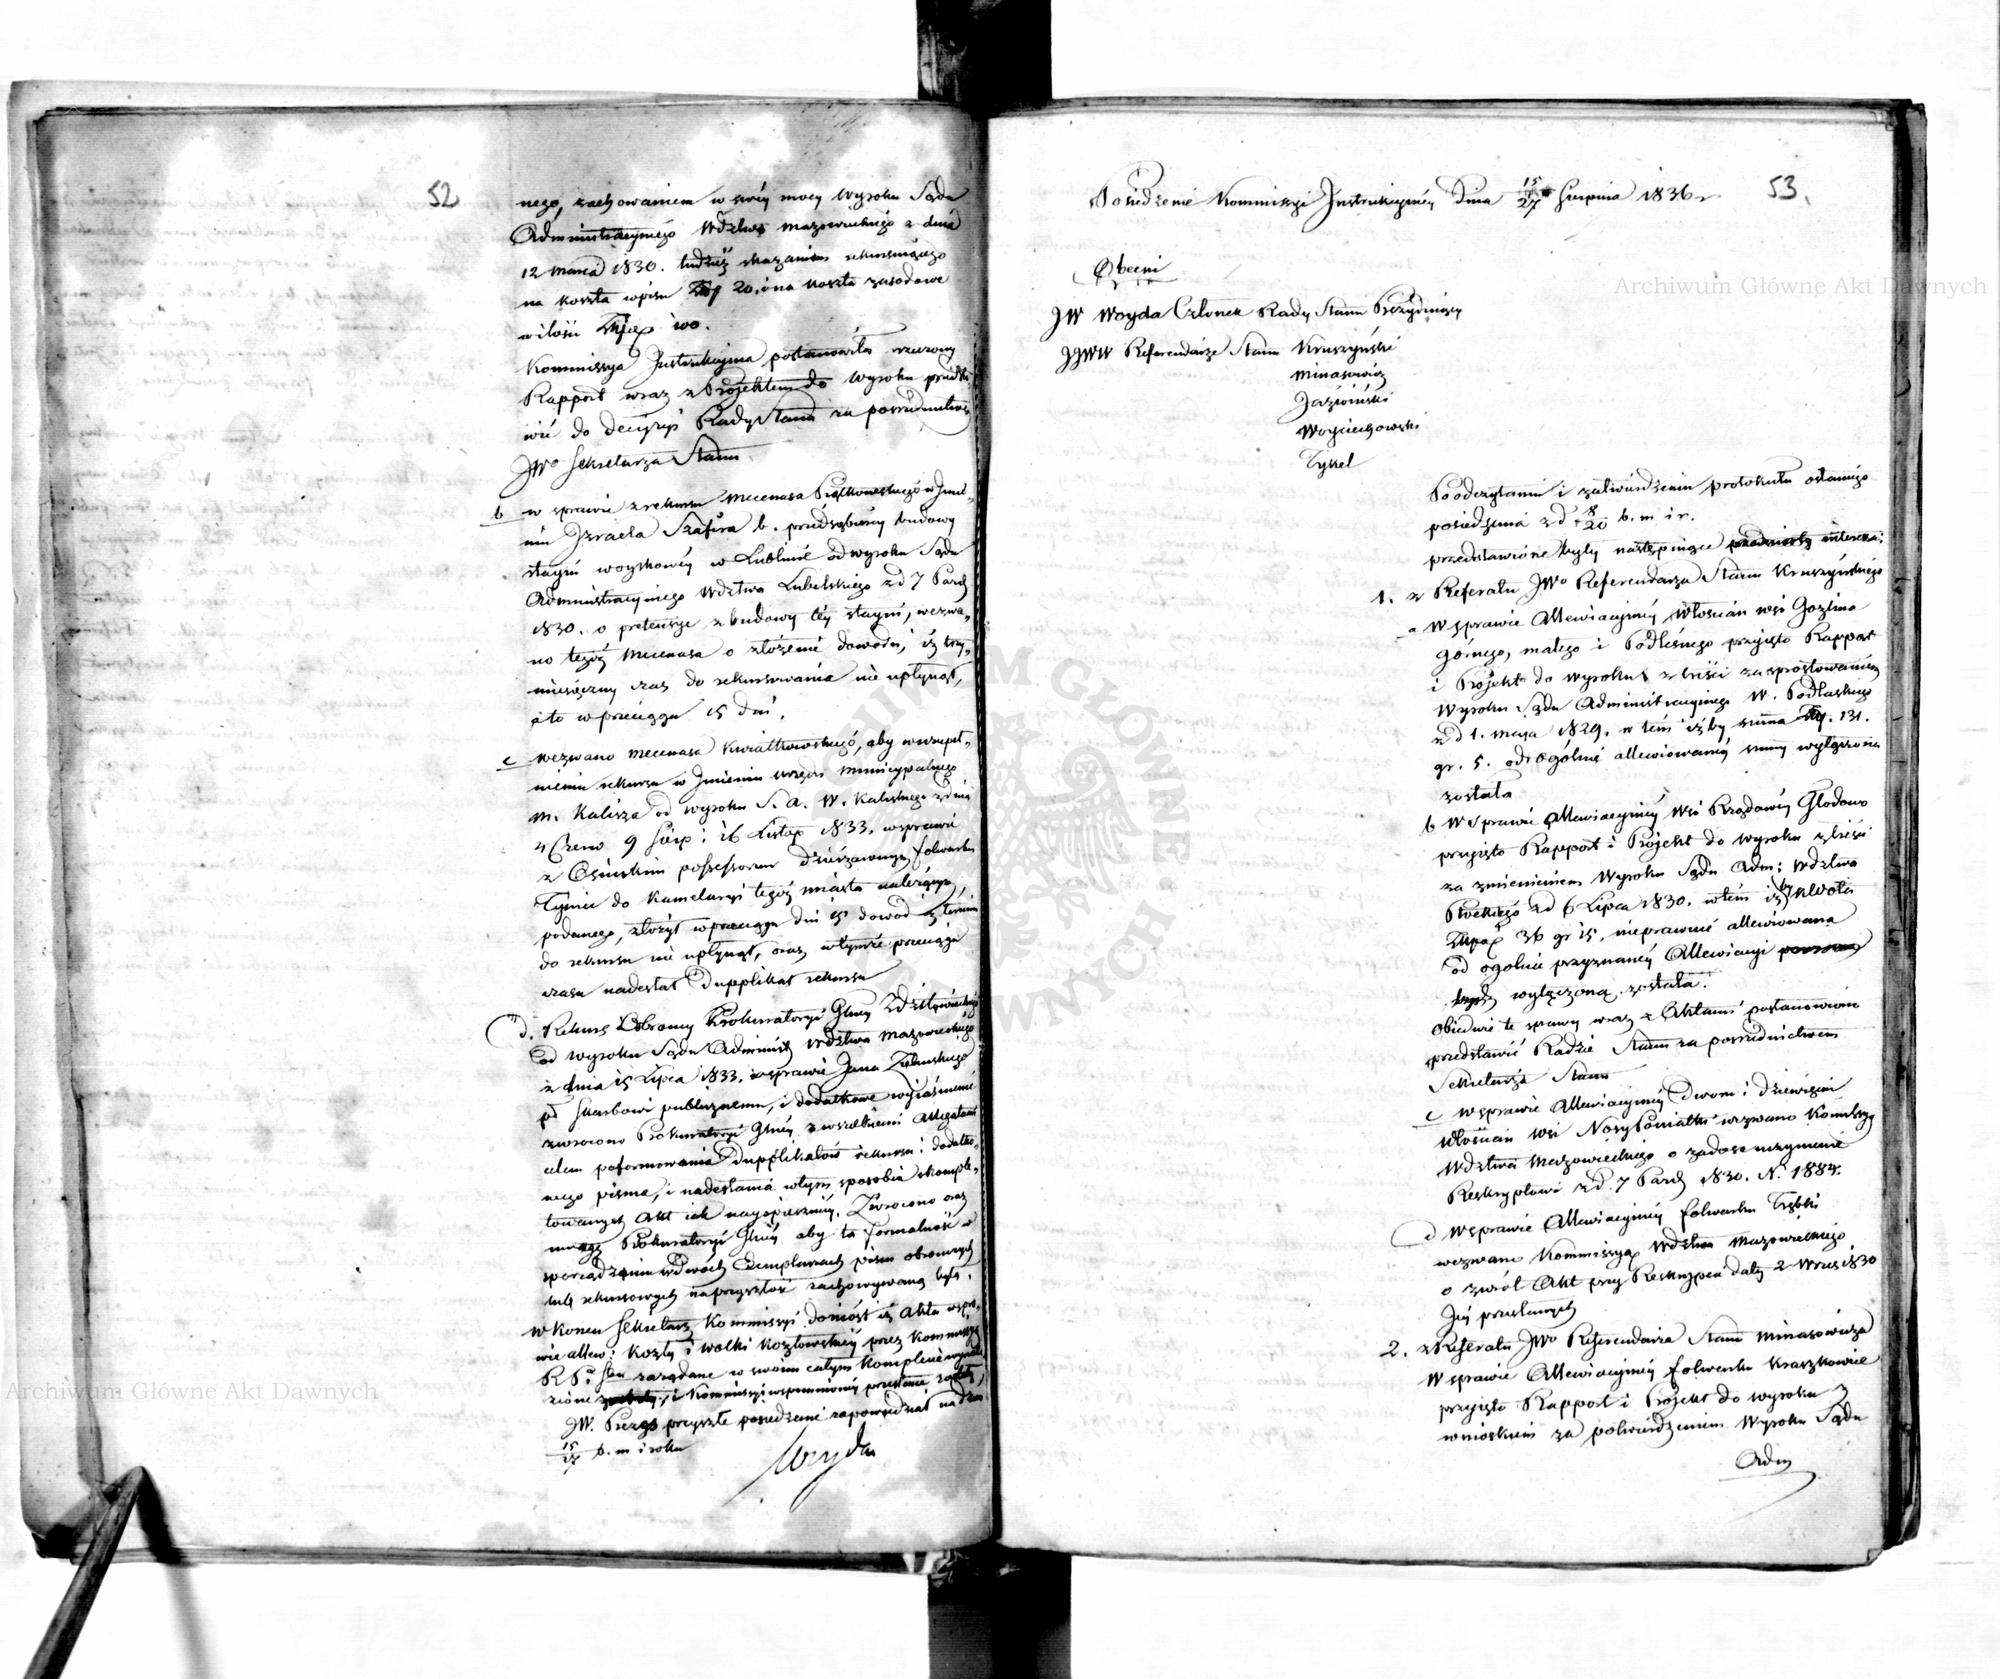 52
nego, zachowaniem w swéy mocy Wyroku Sądu
Administracyjnego Wdztwa Mazowieckiego z dnia
12 Marca 1830. tudzież skazaniem rekurującego
na koszta wpisu Złp 20. i na koszta zasądowe
w ilości Złp. 100.
Kommissya Instrukcyjna postanowiła rzeczony
Rapport wraz z Projektem do Wyroku przedsta-
wić do decyzyi Rady Stanu za pośrednictwem
JWo Sekretarza Stanu.
b w sprawie z rekursu Mecenasa Piątkowskiego w Imie-
niu Izraela Szafira b. przedsębiercy budowy
stayni woyskowéy w Lublinie od wyroku Sądu
Administracyjnego Wdztwa Lubelskiego z d 7 Paźd
1830. o pretensye z budowy téy stayni, wezwa-
no tegóż Mecenasa o złożenie dowodu, iż trzy-
miesięczny czas do rekursowania nie upłynął,
a to w przeciągu 15 dni.
c wezwano Mecenasa Kwiatkowskiego, aby w uzupeł-
nieniu rekursu w Imieniu urzędu Municypalnego
M. Kalisza od wyroku S. A. W. Kaliskiego z dnia
4 Czerw 9 Sierp: i 16 Listop 1833. w sprawie
z Osinskim possessorem dzierżawnym folwarku
Tyniec do Kamelaryi tegóż miasta należącym,
podanego, złożył w przeciągu dni 15 dowód iż termin
do rekursu nie upłynął, oraz w tymże przeciągu
czasu nadesłał Dupplikat rekursu
d. Rekurs Obroncy Prokuratoryi Glney Zdzitowieckiego
od wyroku Sądu Administ Wdztwa Mazowieckiego
z dnia 15 Lipca 1833. w sprawie Jana Zielinskiego
pko Skarbowi publicznemu, i dodatkowe wyjaśnienie
zwrocono Prokuratoryi Glnéy z wszelkiemi allegatami
celem poformowania Dupplikatów rekursu i dodatko-
wego pisma, i nadesłania w tym sposobie skomple-
towanych Akt jak nayspieszniéy. Zwrocono oraz
uwagę Prokuratoryi Glnéy aby ta formalność w
sporządzaniu w dwóch Exemplarzach pism obronnych
tudz rekursowych na przyszłość zachowywaną była.
W Koncu Sekretarz Kommissyi doniósł iż Akta w spra-
wie allew: Kozły i Wolki Kozłowskiéy przez Kommissyą
zażądane w swoim całym komplecie wynale-
zione i Kommissyi wspomnionéy przesłane zostały,
JW. Prezes przyszłe posiedzenie zapowiedział na dzien
15/27 b. m i roku
Woyda
53.
Posiedzenie Kommissyi Instrukcyjnéy Dnia 15/27 Sierpnia 1836 r
Obecni
JW Woyda Członek Rady Stanu Prezydujący
JJWW Referendarze Stanu Kruszyński
Minasowicz
Jaźwiński
Woyciechowski
Tykel
Po odczytaniu i zatwierdzeniu protokułu ostatniego
posiedzenia z d 8/20 b. m i r.
przedstawione były następujące interessa:
1. z Referatu JWo Referendarza Stanu Kruszyńskiego
a W sprawie Allewiacyjnéy Włoscian wsi Gozlina
górnego, małego i Podleśnego przyjęto Rapport
i Projekt do wyroku z treści za sprostowaniem
Wyroku Sądu Administracyjnego W. Podlaskiego
z d 1. Maja 1829. w tém iżby summa złp. 131.
gr. 5. od ogólnie allewiowanéy summy wyłączona
została
b W Sprawie Allewiacyjnéy Wsi Rządowéy Głodowo
przyjęto Rapport i Projekt do wyroku z treści
za zmienieniem Wyroku Sądu Adm: Wdztwa
Płockiego z d 6 Lipca 1830. w tém iż by kwota
Złp. 36 gr 15, nieprawnie allewiowana
od ogolnie przyznanéy Allewiacyi
wyłączoną została.
Obiedwie te sprawy wraz z Aktami postanowiono
przedstawić Radzie Stanu za posrednictwem
Sekretarza Stanu
c w sprawie Allewiacyjnéy Dwom i dziewięciu
Włoscian wsi Nowy Poniatki wezwano Kommissyą
Wdztwa Mazowieckiego o zadosc uczynienie
Reskryptowi z d. 7 Paźd 1830. N. 1884.
d w sprawie Allewiacyjnéy folwarku Trąbki
wezwano Kommissyą Wdztwa Mazowieckiego
o zwrót Akt przy Reskrypcie daty 2 Wrześ 1830
Jéy przesłanych
2. z Referatu JWo Referendarza Stanu Minasowicza
W sprawie Allewiacyjnéy folwarku Kraszkowice
przyjęto Rapport i Projekt do wyroku z
wnioskiem za potwierdzeniem Wyroku Sądu
Adm
Archiwum Główne Akt Dawnych
Archiwum Główne Akt Dawnych
ARCHIWUM GŁÓWNE AKT DAWNYCH